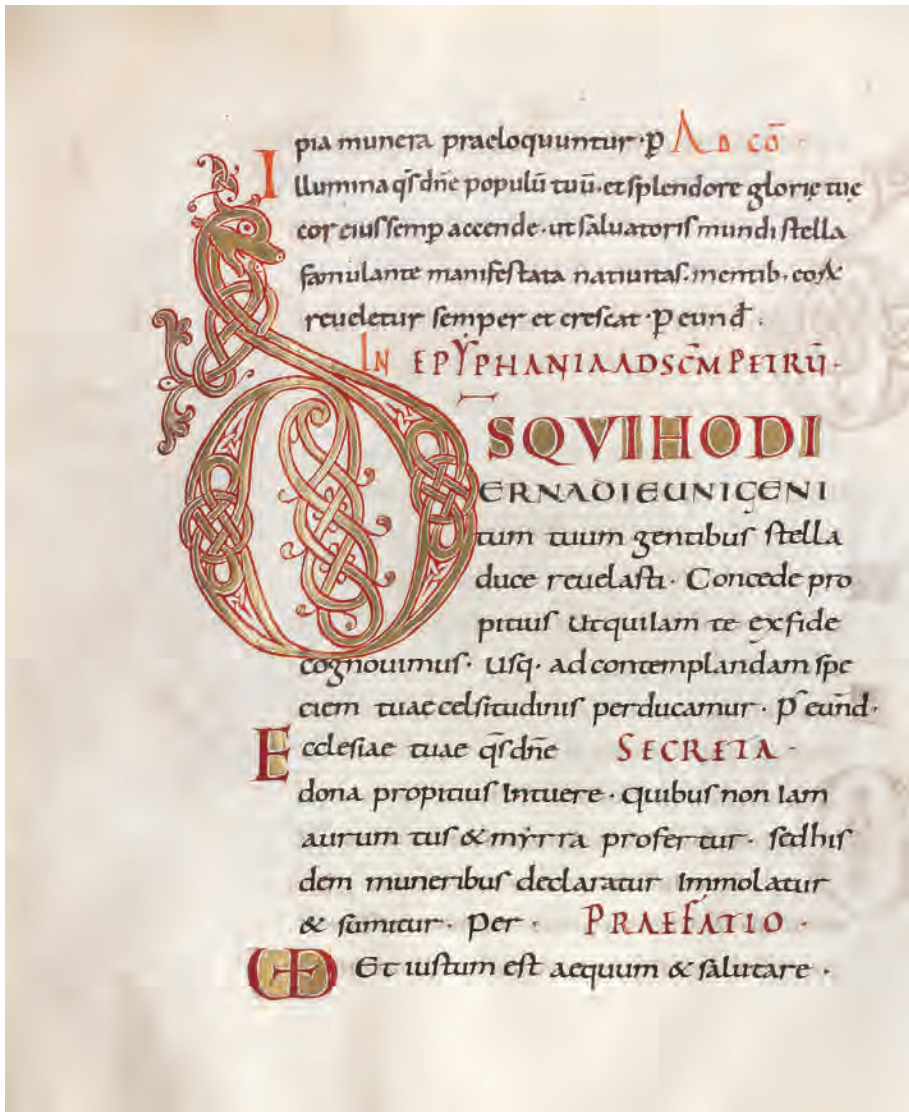 pia munera praeloquuntur · p AD CŌ ·
Illumina qſ dn̄e populū tuū. et ſplendore glorię tuę
cor eiuſ ſemp accende · ut ſaluatoriſ mundi ſtella
famulante manifeſtata natiuitaſ. mentib. eoꝝ
reueletur ſemper et creſcat · P eund̄ .
IN EPYPHANIA AD SC̄M PETRŪ ·
DS QVI HODI
ERNA DIE UNIGENI
tum tuum gentibuſ ſtella
duce reuelaſti · Concede pro
pitiuſ Ut qui iam te ex fide
cognouimuſ · Uſq · ad contemplandam ſpe
ciem tuae celſitudiniſ perducamur · P eund̄ ·
Eccleſiae tuae qſ dn̄e SECRETA ·
dona propitiuſ Intuere · quibuſ non Iam
aurum tuſ & myrra profertur · ſed hiſ
dem muneribuſ declaratur Immolatur
& ſumitur · Per · PRAEFATIO ·
VD Et iuſtum eſt aequum & ſalutare ·